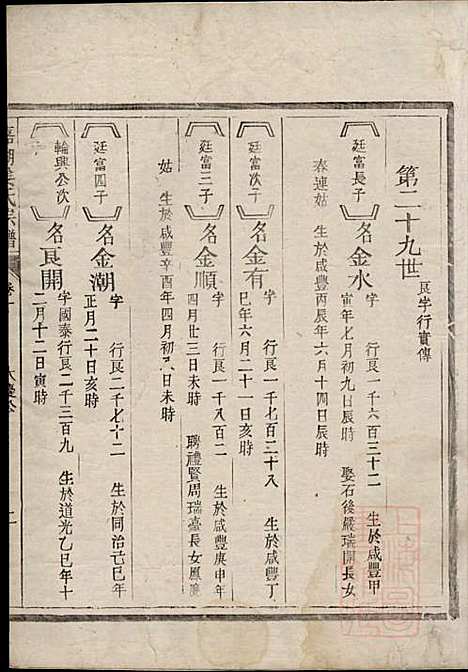 第二十九世 艮字行實傳
廷富長子
名金水
字 行艮一千六百三十二 生於咸豐甲
寅年七月初九日辰時 娶石後嚴瑞開長女
春連姑 生於咸豐丙辰年六月十四日辰時
廷富次子
名金有
字 行艮一千七百二十八 生於咸豐丁
巳年六月二十一日亥時
廷富三子
名金順
字 行艮一千八百二 生於咸豐庚申年
四月廿三日未時 聘禮賢周瑞臺長女鳳
姑 生於咸豐辛酉年四月初六日未時
廷富四子
名金潮
字 行艮二千七十二 生於同治己巳年
正月二十日亥時
輪興公次
名艮開
字國泰行艮二千三百九 生於道光乙巳年十
二月十二日寅時
氏宗譜